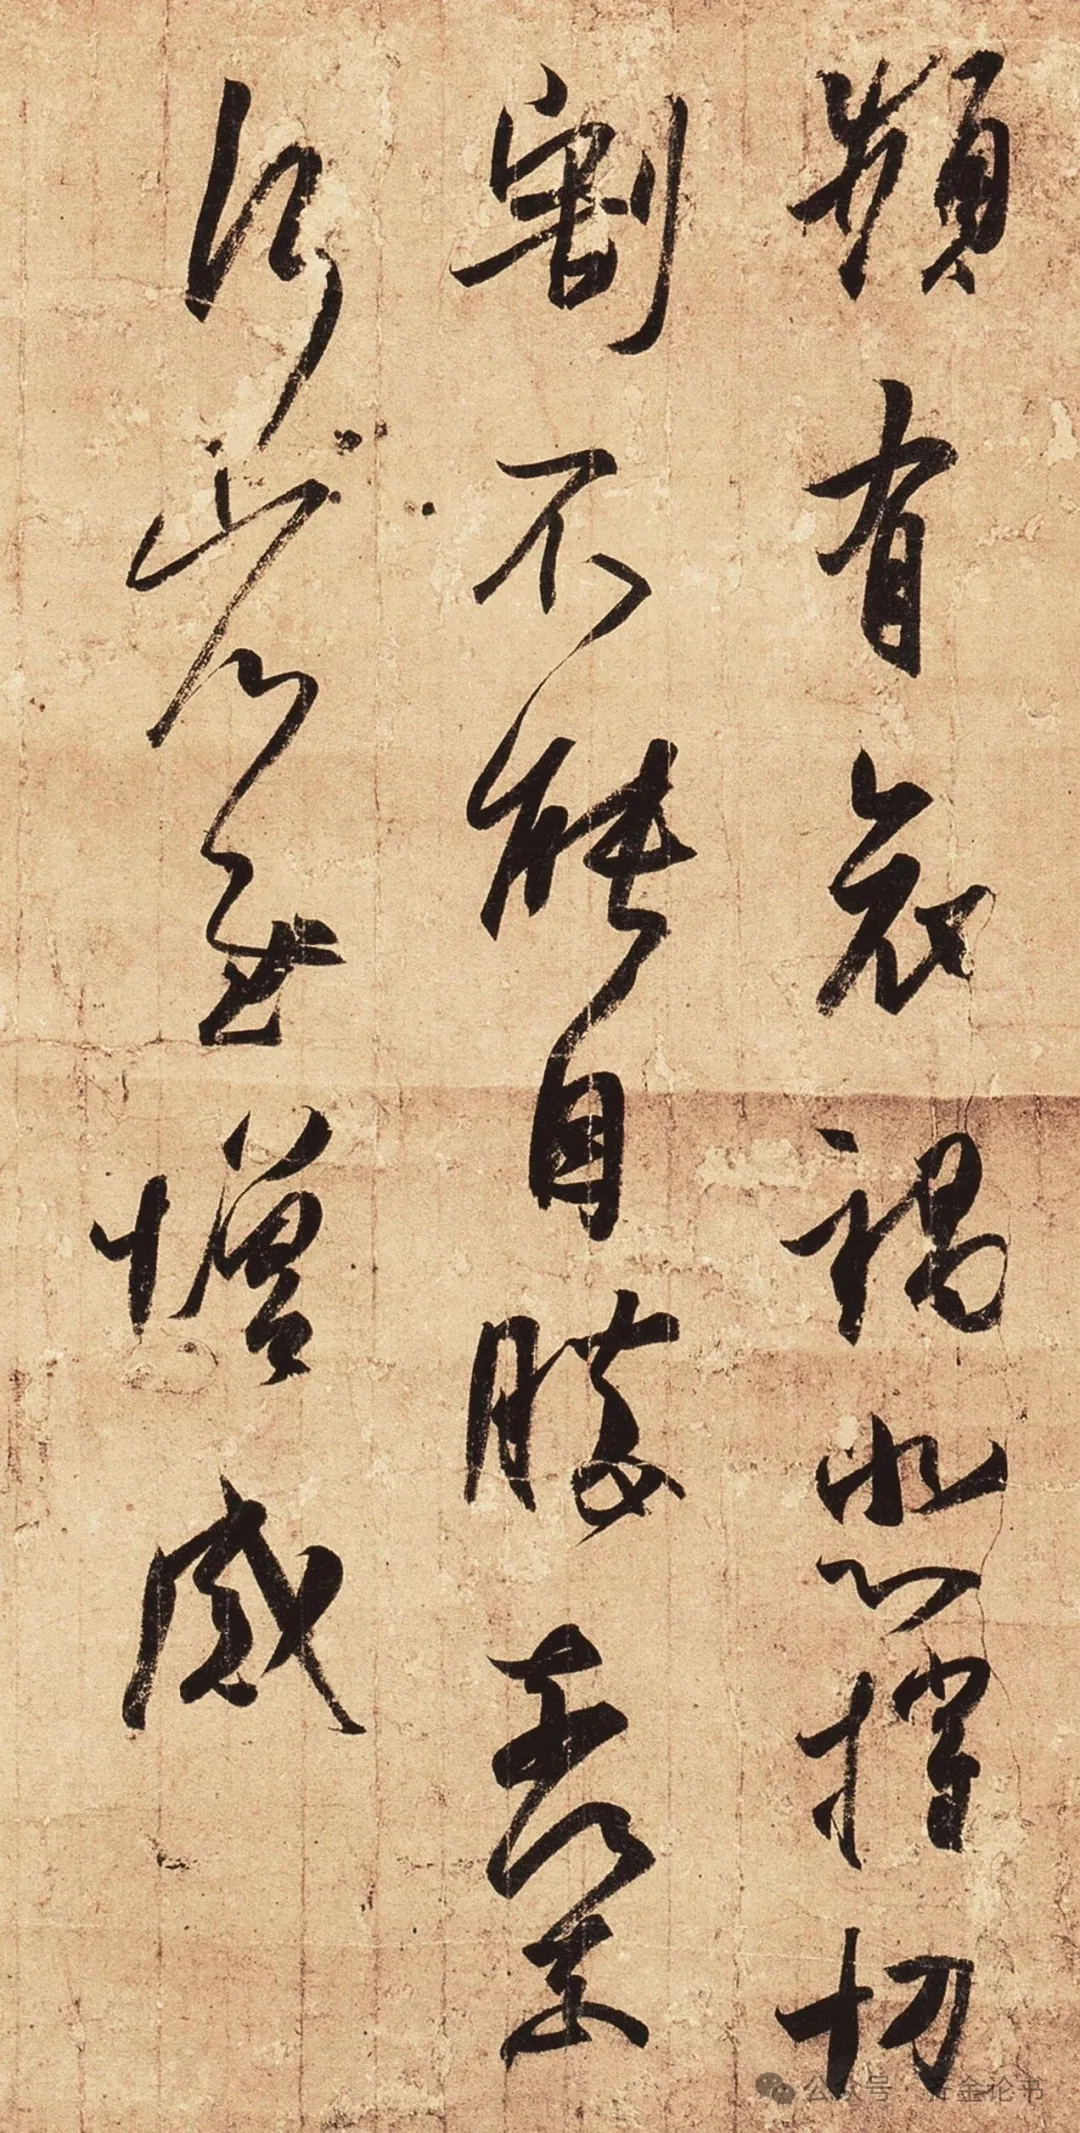 頻有哀禍悲摧切
割不能自勝奈何奈
何省慰增感
公众号